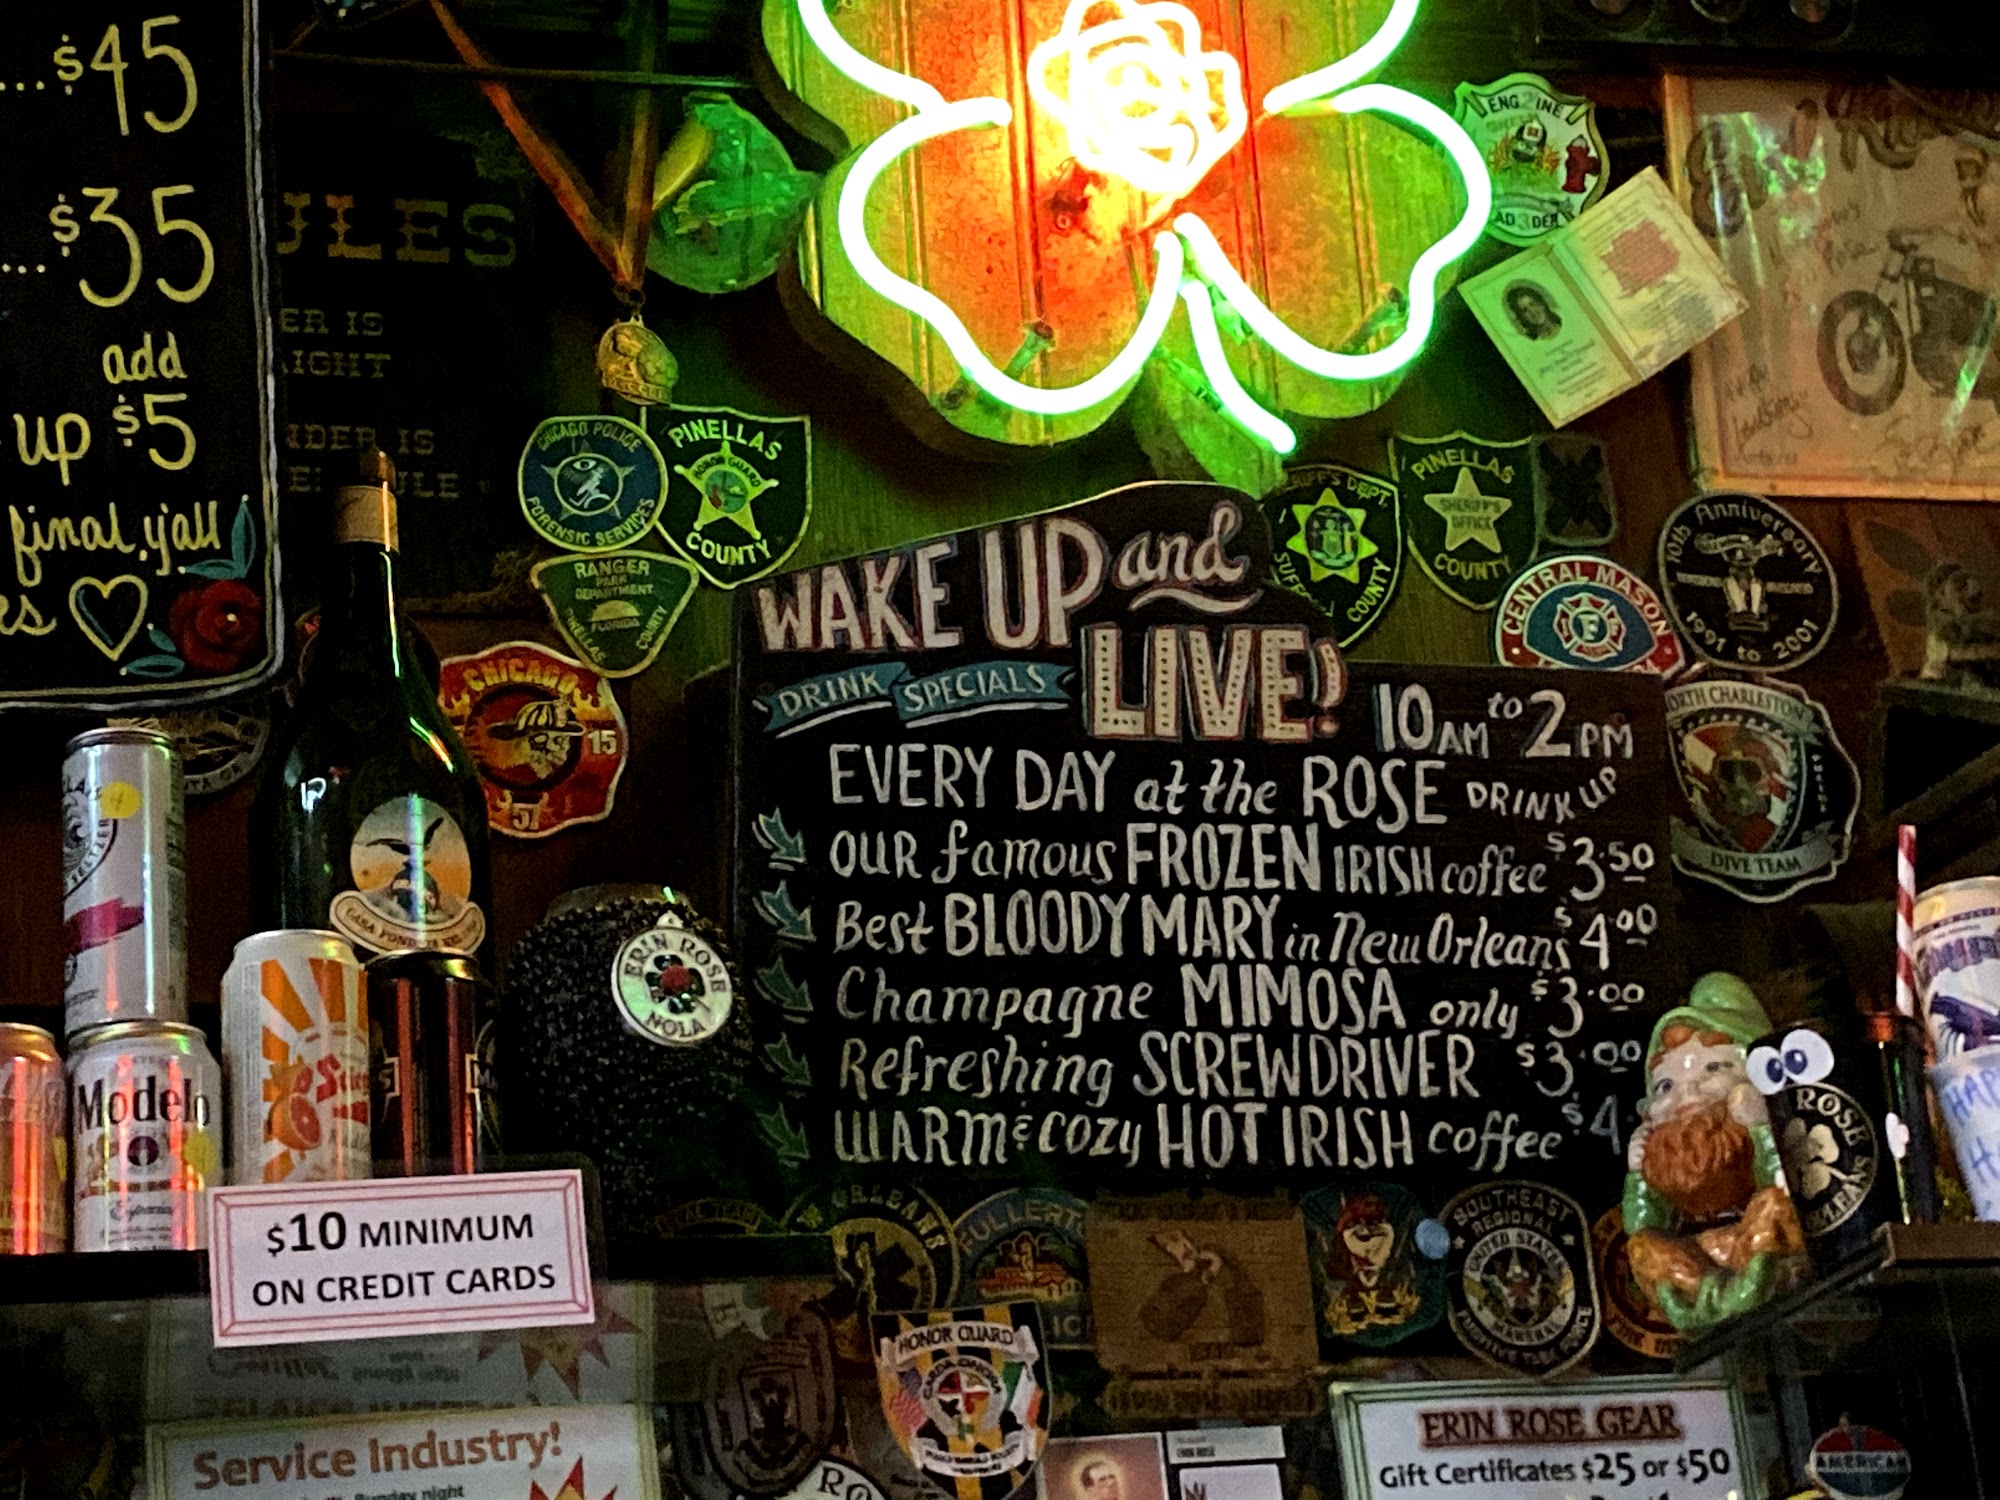 ...$45
...$35
add
up $5
final, y'all
ULES
ER IS
IGHT
IDER IS
ULE
ENGINE
CHICAGO POLICE
FORENSIC SERVICES
PINELLAS
HONOR GUARD
COUNTY
RANGER
PARK
DEPARTMENT
FLORIDA
PINELLAS COUNTY
CHICAGO
15
57
RIFF'S DEPT.
COUNTY
PINELLAS
SHERIFF'S
OFFICE
COUNTY
CENTRAL MASON
10th Anniversary
1991 to 2001
ORTH CHARLESTON
DIVE TEAM
WAKE UP and
LIVE!
DRINK SPECIALS
10AM to 2PM
EVERY DAY at the ROSE DRINK UP
OUR famous FROZEN IRISH coffee $3.50
Best BLOODY MARY in New Orleans $4.00
Champagne MIMOSA only $3.00
Refreshing SCREWDRIVER $3.00
WARM & COZY HOT IRISH coffee $4.
ERIN ROSE
NOLA
Modelo
Especial
ROSE
$10 MINIMUM
ON CREDIT CARDS
W ORLEANS
FULLERT
SOUTHEAST
REGIONAL
UNITED STATES
MARSHAL
HONOR GUARD
Service Industry!
Sunday night
ERIN ROSE GEAR
Gift Certificates $25 or $50
AMERICAN